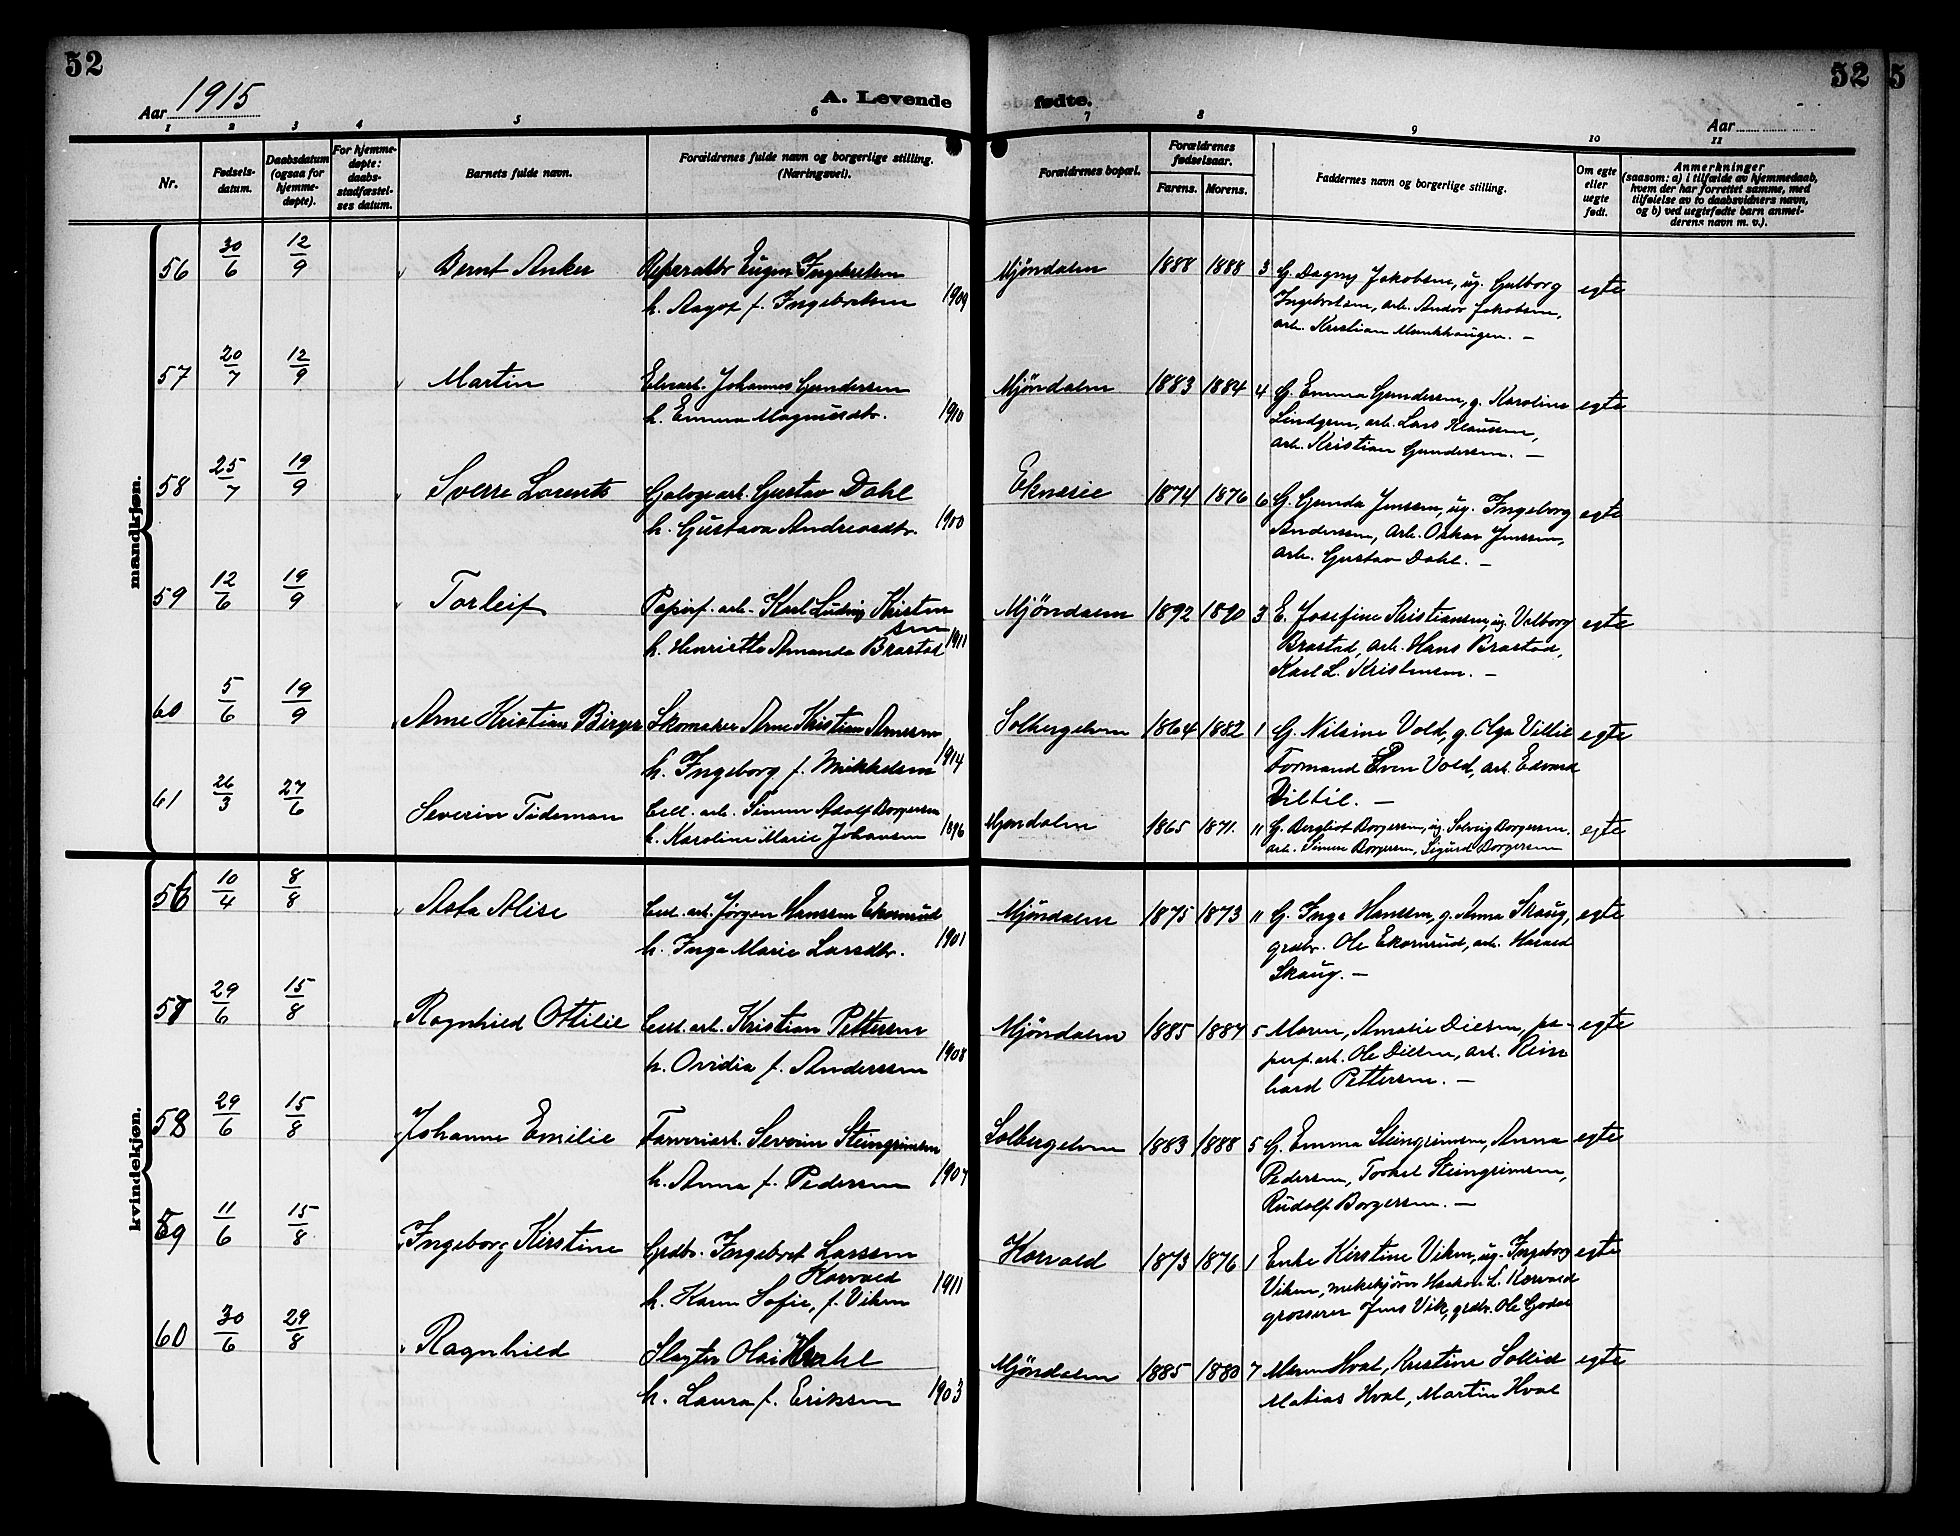 52
52
5
Aar 1915
A. Levende
fødte.
Aar
1 2 3 4 5 6 7 8 9 10 11
Nr.
Fødsels-
datum.
Daabsdatum
(ogsaa for
hjemme-
døpte).
For hjemme-
døpte:
daabs-
stadfæstel-
ses datum.
Barnets fulde navn.
Forældrenes fulde navn og borgerlige stilling.
(Næringsvei).
Forældrenes bopæl.
Forældrenes
fødselsaar.
Farens. Morens.
Faddernes navn og borgerlige stilling.
Om egte
eller
uegte
født.
Anmerkninger
(saasom: a) i tilfælde av hjemmedaab,
hvem der har forrettet samme, med
tilføielse av to daabsvidners navn,
og b) ved uegtefødte barn anmel-
derens navn m. v.).
mandkjøn.
56 30/6 12/9 Bernt Anker Reperatør Eugen Ingebretsen Mjöndalen 1888 1888 3 G. Dagny Jakobsen, ug. Gulborg egte
h. Aagot f. Ingebretsen 1909 Ingebretsen, arb. Andor Jakobsen,
arb. Kristian Munkhaugen. —
57 20/7 12/9 Martin Elvearb. Johannes Gundersen Mjöndalen 1883 1884 4 G. Emma Gundersen, g. Karoline egte
h. Emma Magnusdtr. 1910 Lindgren, arb. Lars Klausen,
arb. Kristian Gundersen. —
58 25/7 19/9 Sverre Lorents arb. Gustav Dahl Eknesie 1874 1876 6 G. Gunda Jensen, ug. Ingeborg egte
h. Gustava Andreasdtr. 1900 Andersen, arb. Oskar Jenssen,
arb. Gustav Dahl. —
59 12/6 19/9 Torleif Papirf. arb. Karl Ludvig Kristen Mjöndalen 1892 1890 3 E. Josefine Kristiansen, ug. Valborg egte
sen
h. Henriette Amanda Brastad 1911 Brastad, arb. Hans Brastad,
Karl L. Kristensen. —
60 5/6 19/9 Arne Kristian Birger Skomaker Arne Kristian Arnesen Solbergelven 1864 1882 1 G. Nilsine Vold, g. Olga Viltil egte
h. Ingeborg f. Mikkelsen 1914 Formand Even Vold, arb. Edvard
Viltil. —
61 26/3 27/6 Severin Tideman Cell. arb. Simen Adolf Borgersen Mjøndalen 1865 1871. 11 G. Bergliot Borgersen, ug. Solveig Borgersen, egte
h. Karoline Marie Johansen 1896 arb. Simen Borgersen, Sigurd Borgersen
kvindekjøn.
56 10/4 8/8 Asta Alise Cell. arb. Jørgen Hansen Ekornrud Mjöndalen 1875 1873 11 G. Inga Hansen, g. Anna Skaug, egte
h. Inga Marie Larsdtr. 1901 grdbr. Ole Ekornrud, arb. Harald
Skaug. —
57 29/6 15/8 Ragnhild Ottilie Cell. arb. Kristian Pettersen Mjöndalen 1885 1884 5 Maren, Amalie Diesen, pa- egte
h. Ovidia f. Anderssen 1908 pirf. arb. Ole Diesen, arb. Rein
hard Pettersen. —
58 29/6 15/8 Johanne Emilie Farveriarb. Severin Steingrimsen Solbergelven 1883 1888 5 G. Emma Steingrimsen, Anna egte
h. Anna f. Pedersen 1907 Pedersen, Torkel Steingrimsen,
Rudolf Borgersen. —
59 11/6 15/8 Ingeborg Kirstine Grdbr. Ingebret Larssen Korvald 1873 1876 1 Enke Kirstine Viken, ug. Ingeborg egte
Korvald
h. Karen Sofie, f. Viken 1911 Viken, Haaken L. Korvald
grosserer Jens Vik, grdbr. Ole Godal
60 30/6 29/8 Ragnhild Slagter Olai Mjöndalen 1885 1880 7 Maren Hval, Kristine Sollid egte
h. Laura f. Erikssen 1903 Matias Hval, Martin Hval